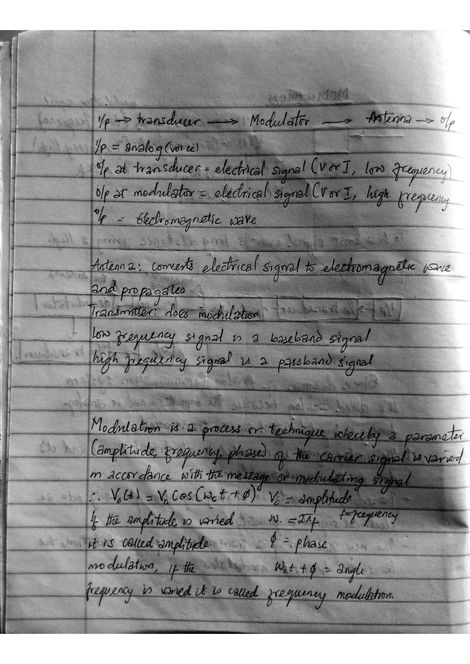 I/p → transducer → Modulator → Antenna → o/p
I/p = analog (voice)
o/p at transducer = electrical signal (V or I, low frequency)
o/p at modulator = electrical signal (V or I, high frequency
o/p = Electromagnetic wave
Antenna: converts electrical signal to electromagnetic wave
and propagates
Transmitter: does modulation
Low frequency signal is a baseband signal
high frequency signal is a passband signal
Modulation is a process or technique whereby a parameter
(amplitude, frequency, phase) of the carrier signal is varied
in accordance with the message or modulating signal
∴ Vc(t) = Vc Cos(ωc t + φ) Vc = amplitude
If the amplitude is varied ω = 2πf f = frequency
it is called amplitude φ = phase
modulation, if the ωc t + φ = angle
frequency is varied it is called frequency modulation.